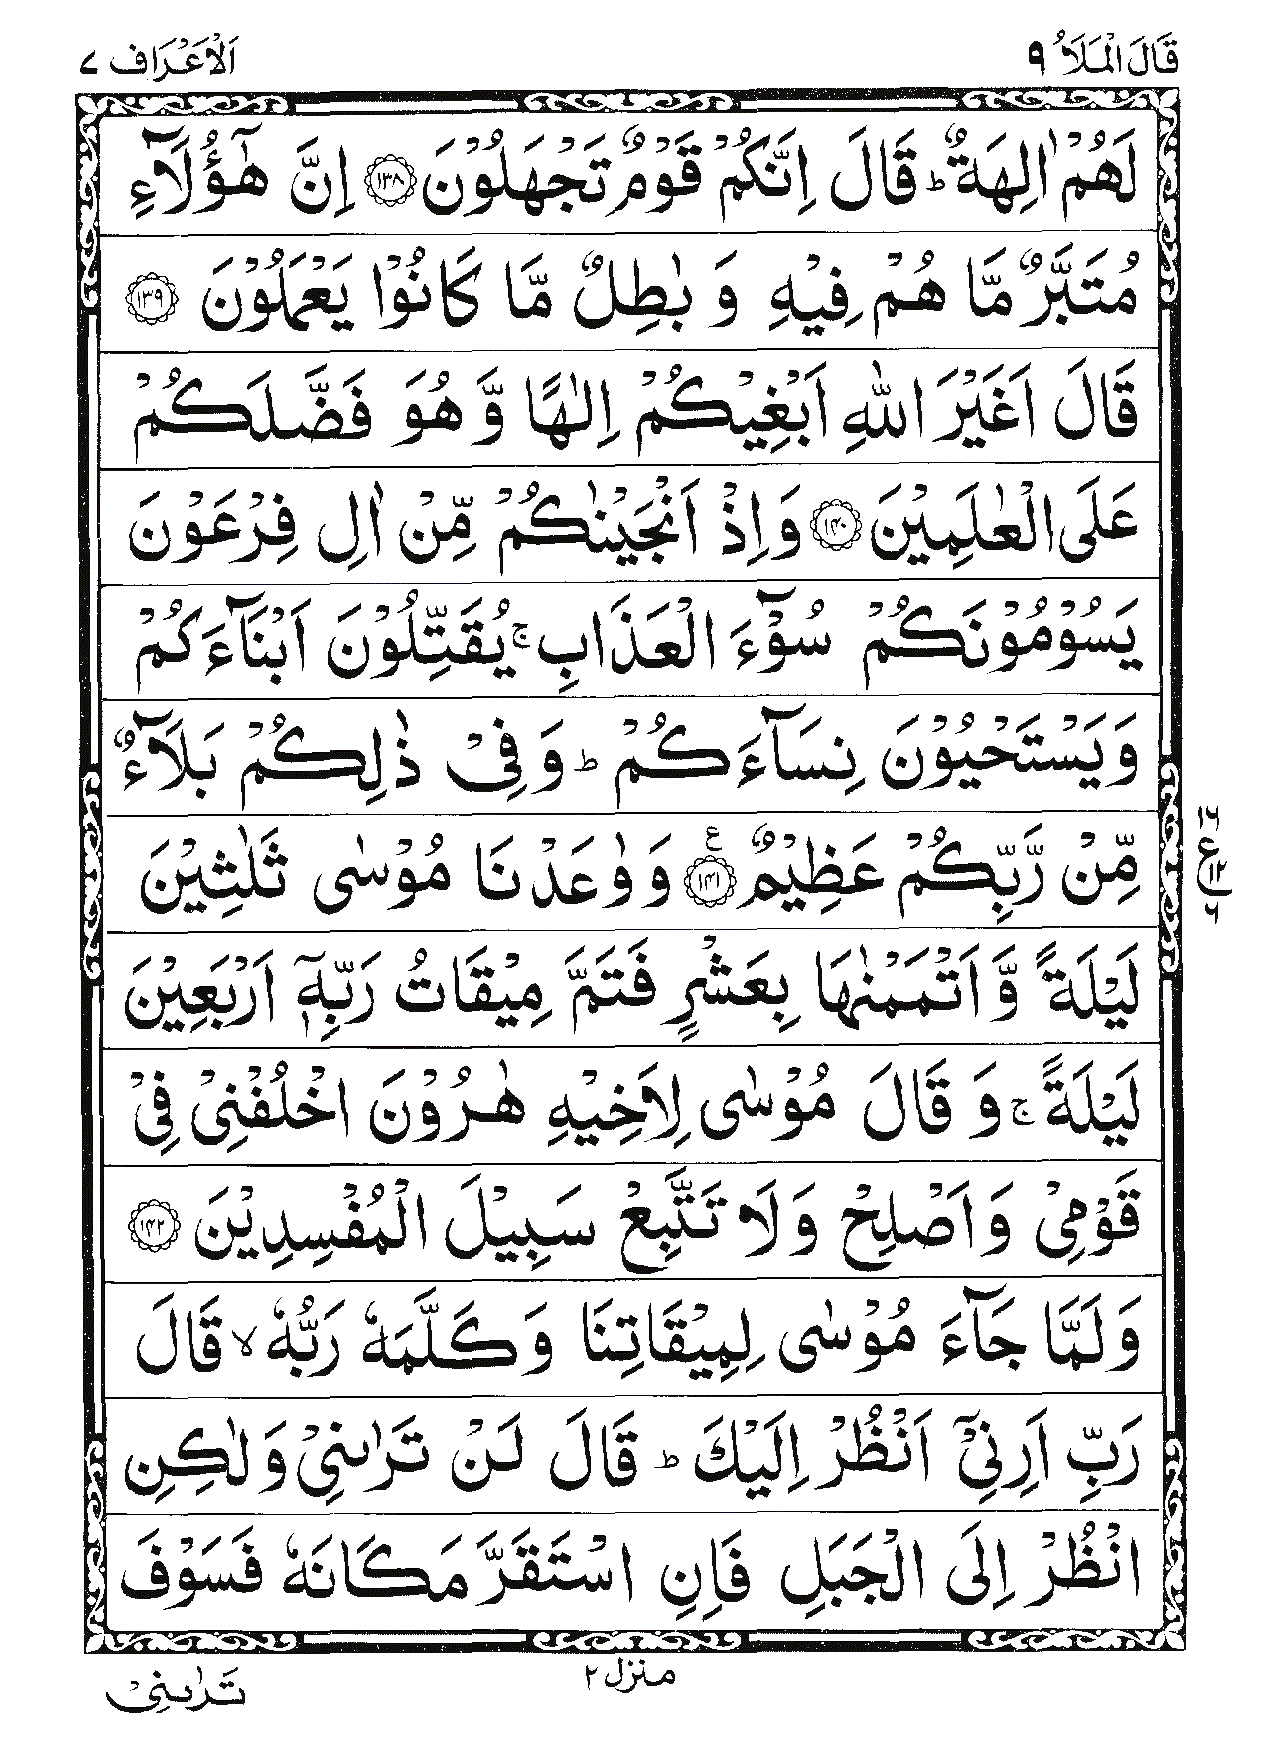 قَالَ الْمَلَاُ ۹
اَلْاَعْرَاف ۷
لَهُمْ اٰلِهَةٌ ؕ قَالَ اِنَّكُمْ قَوْمٌ تَجْهَلُوْنَ ﴿۱۳۸﴾ اِنَّ هٰۤؤُلَآءِ
مُتَبَّرٌ مَّا هُمْ فِيْهِ وَ بٰطِلٌ مَّا كَانُوْا يَعْمَلُوْنَ ﴿۱۳۹﴾
قَالَ اَغَيْرَ اللّٰهِ اَبْغِيْكُمْ اِلٰهًا وَّ هُوَ فَضَّلَكُمْ
عَلَى الْعٰلَمِيْنَ ﴿۱۴۰﴾ وَاِذْ اَنْجَيْنٰكُمْ مِّنْ اٰلِ فِرْعَوْنَ
يَسُوْمُوْنَكُمْ سُوْٓءَ الْعَذَابِ ۚ يُقَتِّلُوْنَ اَبْنَآءَكُمْ
وَيَسْتَحْيُوْنَ نِسَآءَكُمْ ؕ وَ فِيْ ذٰلِكُمْ بَلَآءٌ
مِّنْ رَّبِّكُمْ عَظِيْمٌ ﴿۱۴۱﴾ ع وَ وٰعَدْنَا مُوْسٰى ثَلٰثِيْنَ
۱۶
ع
۱۲
۶
لَيْلَةً وَّ اَتْمَمْنٰهَا بِعَشْرٍ فَتَمَّ مِيْقَاتُ رَبِّهٖۤ اَرْبَعِيْنَ
لَيْلَةً ۚ وَ قَالَ مُوْسٰى لِاَخِيْهِ هٰرُوْنَ اخْلُفْنِيْ فِيْ
قَوْمِيْ وَ اَصْلِحْ وَلَا تَتَّبِعْ سَبِيْلَ الْمُفْسِدِيْنَ ﴿۱۴۲﴾
وَلَمَّا جَآءَ مُوْسٰى لِمِيْقَاتِنَا وَكَلَّمَهٗ رَبُّهٗ ۙ قَالَ
رَبِّ اَرِنِيْۤ اَنْظُرْ اِلَيْكَ ؕ قَالَ لَنْ تَرٰىنِيْ وَلٰكِنِ
انْظُرْ اِلَى الْجَبَلِ فَاِنِ اسْتَقَرَّ مَكَانَهٗ فَسَوْفَ
منزل ۲
تَرٰىنِيْ